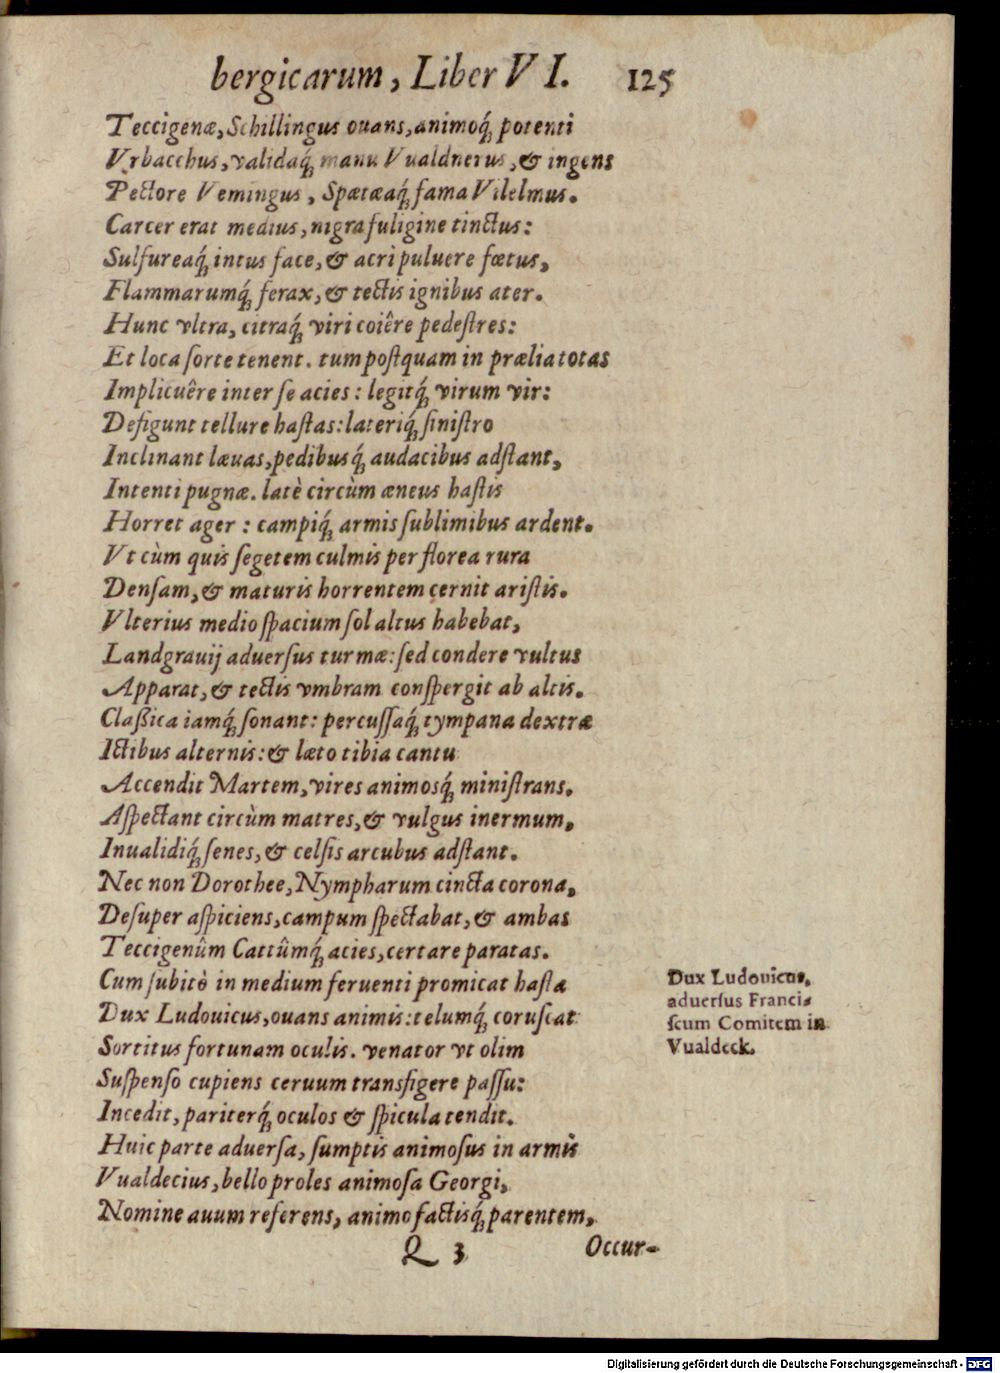 bergicarum, Liber VI. 125
Teccigenæ, Schillingus ouans, animoq́; potenti
Vrbacchus, validaq́; manu Vualdnerus, & ingens
Pectore Vemingus, Spætæaq́; fama Vilelmus.
Carcer erat medius, nigra fuligine tinctus:
Sulfureaq́; intus face, & acri puluere fœtus,
Flammarumq́; ferax, & tectis ignibus ater.
Hunc vltra, citraq́; viri coiêre pedeſtres:
Et loca ſorte tenent. tum poſtquam in prælia totas
Implicuêre inter ſe acies: legitq́; virum vir:
Defigunt tellure haſtas: lateriq́; ſiniſtro
Inclinant læuas, pedibusq́; audacibus adſtant,
Intenti pugnæ. latè circùm æneus haſtis
Horret ager: campiq́; armis ſublimibus ardent.
Vt cùm quis ſegetem culmis per florea rura
Denſam, & maturis horrentem cernit ariſtis.
Vlterius medio ſpacium ſol altus habebat,
Landgrauij aduerſus turmæ: ſed condere vultus
Apparat, & tectis vmbram conſpergit ab altis.
Claßica iamq́; ſonant: percuſſaq́; tympana dextræ
Ictibus alternis: & læto tibia cantu
Accendit Martem, vires animosq́; miniſtrans.
Aſpectant circùm matres, & vulgus inermum,
Inualidiq́; ſenes, & celſis arcubus adſtant.
Nec non Dorothee, Nympharum cincta corona,
Deſuper aſpiciens, campum ſpectabat, & ambas
Teccigenûm Cattûmq́; acies, certare paratas.
Cum ſubitò in medium feruenti promicat haſta
Dux Ludouicus, ouans animis: telumq́; coruſcat
Sortitus fortunam oculis. venator vt olim
Suſpenſo cupiens ceruum transfigere paſſu:
Incedit, pariterq́; oculos & ſpicula tendit.
Huic parte aduerſa, ſumptis animoſus in armis
Vualdecius, bello proles animoſa Georgi,
Nomine auum referens, animo factisq́; parentem,
Q 3 Occur-
Dux Ludouicus,
aduerſus Franci-
ſcum Comitem in
Vualdeck.
Digitalisierung gefördert durch die Deutsche Forschungsgemeinschaft - DFG